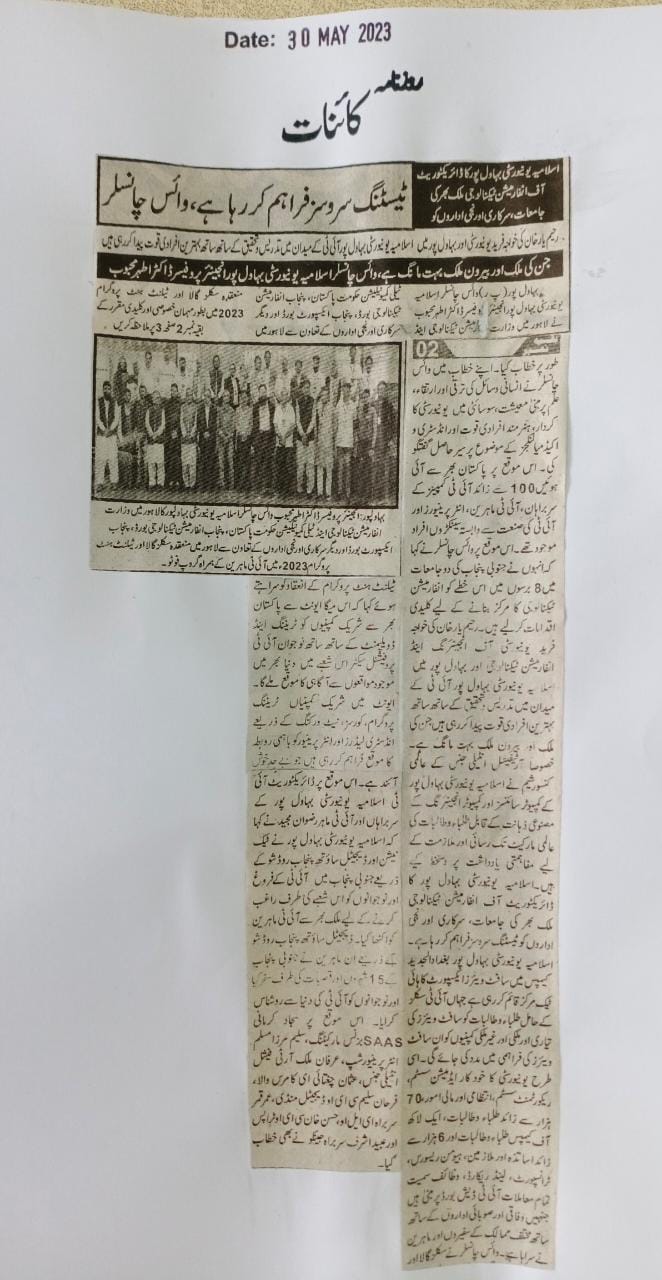 Date: 30 MAY 2023
روزنامہ
کائنات
اسلامیہ یونیورسٹی بہاول پور کا ڈائریکٹوریٹ
آف انفارمیشن ٹیکنالوجی ملک بھر کی
جامعات، سرکاری اور نجی اداروں کو
ٹیسٹنگ سروسز فراہم کر رہا ہے، وائس چانسلر
رحیم یار خان کی خواجہ فرید یونیورسٹی اور بہاول پور میں اسلامیہ یونیورسٹی بہاول پور آئی ٹی کے میدان میں تدریس و تحقیق کے ساتھ ساتھ بہترین افرادی قوت پیدا کر رہی ہیں
جن کی ملک اور بیرون ملک بہت مانگ ہے، وائس چانسلر اسلامیہ یونیورسٹی بہاول پور انجینئر پروفیسر ڈاکٹر اطہر محبوب
بہاول پور (پ ر) وائس چانسلر اسلامیہ
یونیورسٹی بہاول پور انجینئر پروفیسر ڈاکٹر اطہر محبوب
نے لاہور میں وزارت انفارمیشن ٹیکنالوجی اینڈ
ٹیلی کمیونیکیشن حکومت پاکستان، پنجاب انفارمیشن
ٹیکنالوجی بورڈ، پنجاب ایکسپورٹ بورڈ اور دیگر
سرکاری اور نجی اداروں کے تعاون سے لاہور میں
منعقدہ سکلز گالا اور ٹیلنٹ ہنٹ پروگرام
2023 میں بطور مہمان خصوصی اور کلیدی مقرر کے
بقیہ نمبر 2 صفحہ 3 پر ملاحظہ کریں
بہاولپور: انجینئر پروفیسر ڈاکٹر اطہر محبوب وائس چانسلر اسلامیہ یونیورسٹی بہاولپور کا لاہور میں وزارت
انفارمیشن ٹیکنالوجی اینڈ ٹیلی کمیونیکیشن حکومت پاکستان، پنجاب انفارمیشن ٹیکنالوجی بورڈ، پنجاب
ایکسپورٹ بورڈ اور دیگر سرکاری اور نجی اداروں کے تعاون سے لاہور میں منعقدہ سکلز گالا اور ٹیلنٹ ہنٹ
پروگرام 2023ء میں آئی ٹی ماہرین کے ہمراہ گروپ فوٹو۔
02
طور پر خطاب کیا۔ اپنے خطاب میں وائس
چانسلر نے انسانی وسائل کی ترقی اور ارتقاء،
علم پر مبنی معیشت، سوسائٹی میں یونیورسٹی کا
کردار، ہنر مند افرادی قوت اور انڈسٹری و
اکیڈمیا لنکجز کے موضوع پر سیر حاصل گفتگو
کی۔ اس موقع پر پاکستان بھر سے آئی
ہوئیں 100 سے زائد آئی ٹی کمپنیز کے
سربراہان، آئی ٹی ماہرین، انٹرپرینیورز اور
آئی ٹی کی صنعت سے وابستہ سینکڑوں افراد
موجود تھے۔ اس موقع پر وائس چانسلر نے کہا
کہ انہوں نے جنوبی پنجاب کی دو جامعات
میں 8 برسوں میں اس خطے کو انفارمیشن
ٹیکنالوجی کا مرکز بنانے کے لیے کلیدی
اقدامات کر لیے ہیں۔ رحیم یار خان کی خواجہ
فرید یونیورسٹی آف انجینئرنگ اینڈ
انفارمیشن ٹیکنالوجی اور بہاول پور میں
اسلامیہ یونیورسٹی بہاول پور آئی ٹی کے
میدان میں تدریس و تحقیق کے ساتھ ساتھ
بہترین افرادی قوت پیدا کر رہی ہیں جن کی
ملک اور بیرون ملک بہت مانگ ہے۔
خصوصاً آرٹیفیشل انٹیلی جنس کے عالمی
کنسورشیم نے اسلامیہ یونیورسٹی بہاول پور
کے کمپیوٹر سائنسز اور کمپیوٹر انجینئرنگ کے
مصنوعی ذہانت کے قابل طلباء و طالبات کی
عالمی مارکیٹ تک رسائی اور ملازمت کے
لیے مفاہمتی یادداشت پر دستخط کیے
ہیں۔ اسلامیہ یونیورسٹی بہاول پور کا
ڈائریکٹوریٹ آف انفارمیشن ٹیکنالوجی
ملک بھر کی جامعات، سرکاری اور نجی
اداروں کو ٹیسٹنگ سروسز فراہم کر رہا ہے۔
اسلامیہ یونیورسٹی بہاول پور بغداد الجدید
کیمپس میں سافٹ ویئرز ایکسپورٹ کا ہائی
ٹیک مرکز قائم کر رہی ہے جہاں آئی ٹی سکلز
کے حامل طلباء و طالبات کو سافٹ ویئرز کی
تیاری اور ملکی اور غیر ملکی کمپنیوں کو ان سافٹ
ویئرز کی فراہمی میں مدد کی جائے گی۔ اسی
طرح یونیورسٹی کا خود کار ایڈمیشن سسٹم،
ریکروٹمنٹ سسٹم، انتظامی اور مالی امور، 70
ہزار سے زائد طلباء و طالبات، ایک لاکھ
آف کیمپس طلباء و طالبات اور 6 ہزار سے
زائد اساتذہ اور ملازمین، ہیومن ریسورس،
ٹرانسپورٹ، لینڈ ریکارڈ، وظائف سمیت
تمام معاملات آئی ٹی ڈیش بورڈ پر مبنی ہیں
جنہیں وفاقی اور صوبائی اداروں کے ساتھ
ساتھ مختلف ممالک کے سفیروں اور ماہرین
نے سراہا ہے۔ وائس چانسلر نے سکلز گالا اور
ٹیلنٹ ہنٹ پروگرام کے انعقاد کو سراہتے
ہوئے کہا کہ اس میگا ایونٹ سے پاکستان
بھر سے شریک کمپنیوں کو ٹریننگ اینڈ
ڈویلپمنٹ کے ساتھ ساتھ نوجوان آئی ٹی
پروفیشنل سیکٹر اس شعبے میں دنیا بھر میں
موجود مواقعوں سے آگاہی کا موقع ملے گا۔
ایونٹ میں شریک کمپنیاں ٹریننگ
پروگرام، کورسز، نیٹ ورکنگ کے ذریعے
انڈسٹری لیڈرز اور انٹرپرینیور کو باہمی روابط
کا موقع فراہم کر رہی ہیں جو بے حد خوش
آئند ہے۔ اس موقع پر ڈائریکٹوریٹ آئی
ٹی اسلامیہ یونیورسٹی بہاول پور کے
سربراہان اور آئی ٹی ماہر رضوان مجید نے کہا
کہ اسلامیہ یونیورسٹی بہاول پور نے ٹیک
نیشن اور ڈیجیٹل ساؤتھ پنجاب روڈ شو کے
ذریعے جنوبی پنجاب میں آئی ٹی کے فروغ
اور نوجوانوں کو اس شعبے کی طرف راغب
کرنے کے لیے ملک بھر سے آئی ٹی ماہرین
کو اکٹھا کیا۔ ڈیجیٹل ساؤتھ پنجاب روڈ شو
کے ذریعے ان ماہرین نے جنوبی پنجاب
کے 15 شہروں اور قصبات کی طرف سفر کیا
اور نوجوانوں کو آئی ٹی کی دنیا سے روشناس
کرایا۔ اس موقع پر سجاد کرمانی
SAAS بزنس مارکیٹنگ، سلیم مرزا مسلم
انٹرپرینیورشپ، عرفان ملک آرٹی فیشل
انٹیلی جنس، عثمان چغتائی ای کامرس والا،
فرحان سلیم سی ای او ڈیجیٹل منڈی، عمر قمر
سربراہ ای ایل او، حسن خان سی ای او ٹراپس
اور عبید اشرف سربراہ جینکو نے بھی خطاب
کیا۔